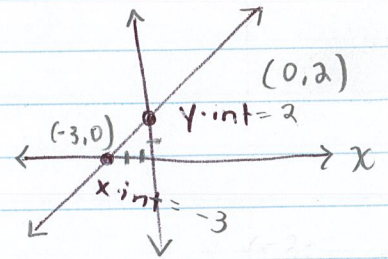 (0,2)
y-int = 2
(-3,0)
x
x-int = -3